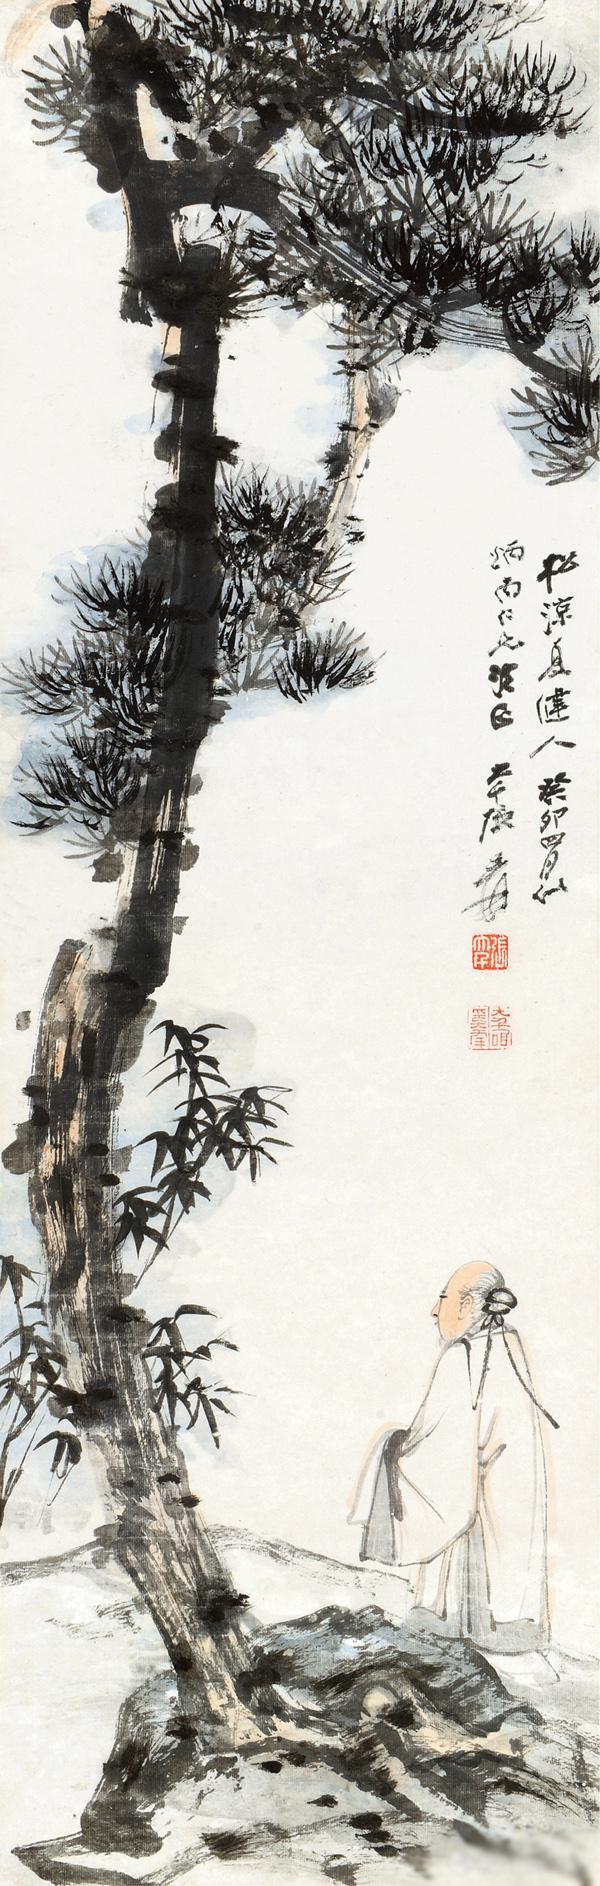 松涼夏健人 癸卯四月似
炳南仁兄法正 大千張爰
張大千